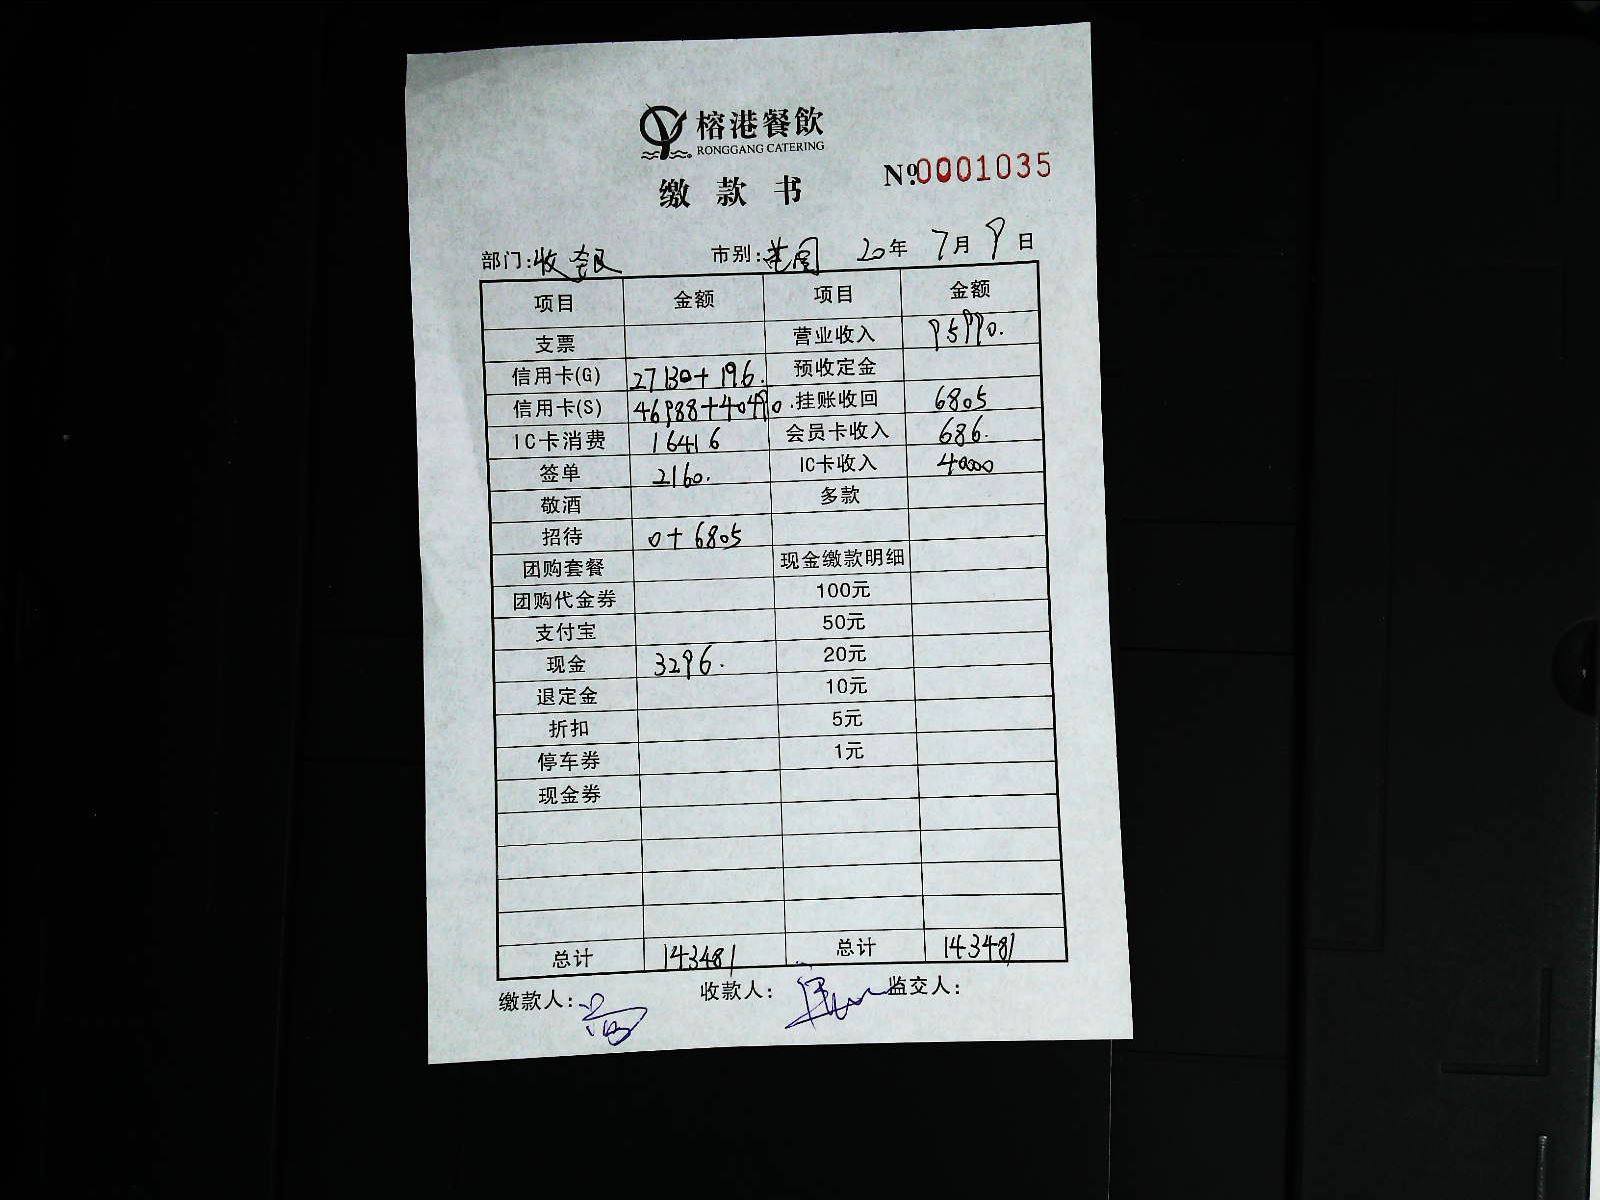 榕港餐飲
RONGGANG CATERING
缴款书 №0001035
部门:收银 市别: 20年 7月 9日
项目 金额 项目 金额
支票 营业收入 95990.
信用卡(G) 27130+196. 预收定金
信用卡(S) 46988+40490. 挂账收回 6805
IC卡消费 16416 会员卡收入 686.
签单 2160. IC卡收入 40000
敬酒 多款
招待 0+6805
团购套餐 现金缴款明细
团购代金券 100元
支付宝 50元
现金 3296. 20元
退定金 10元
折扣 5元
停车券 1元
现金券
总计 143481 总计 143481
缴款人: 收款人: 监交人: